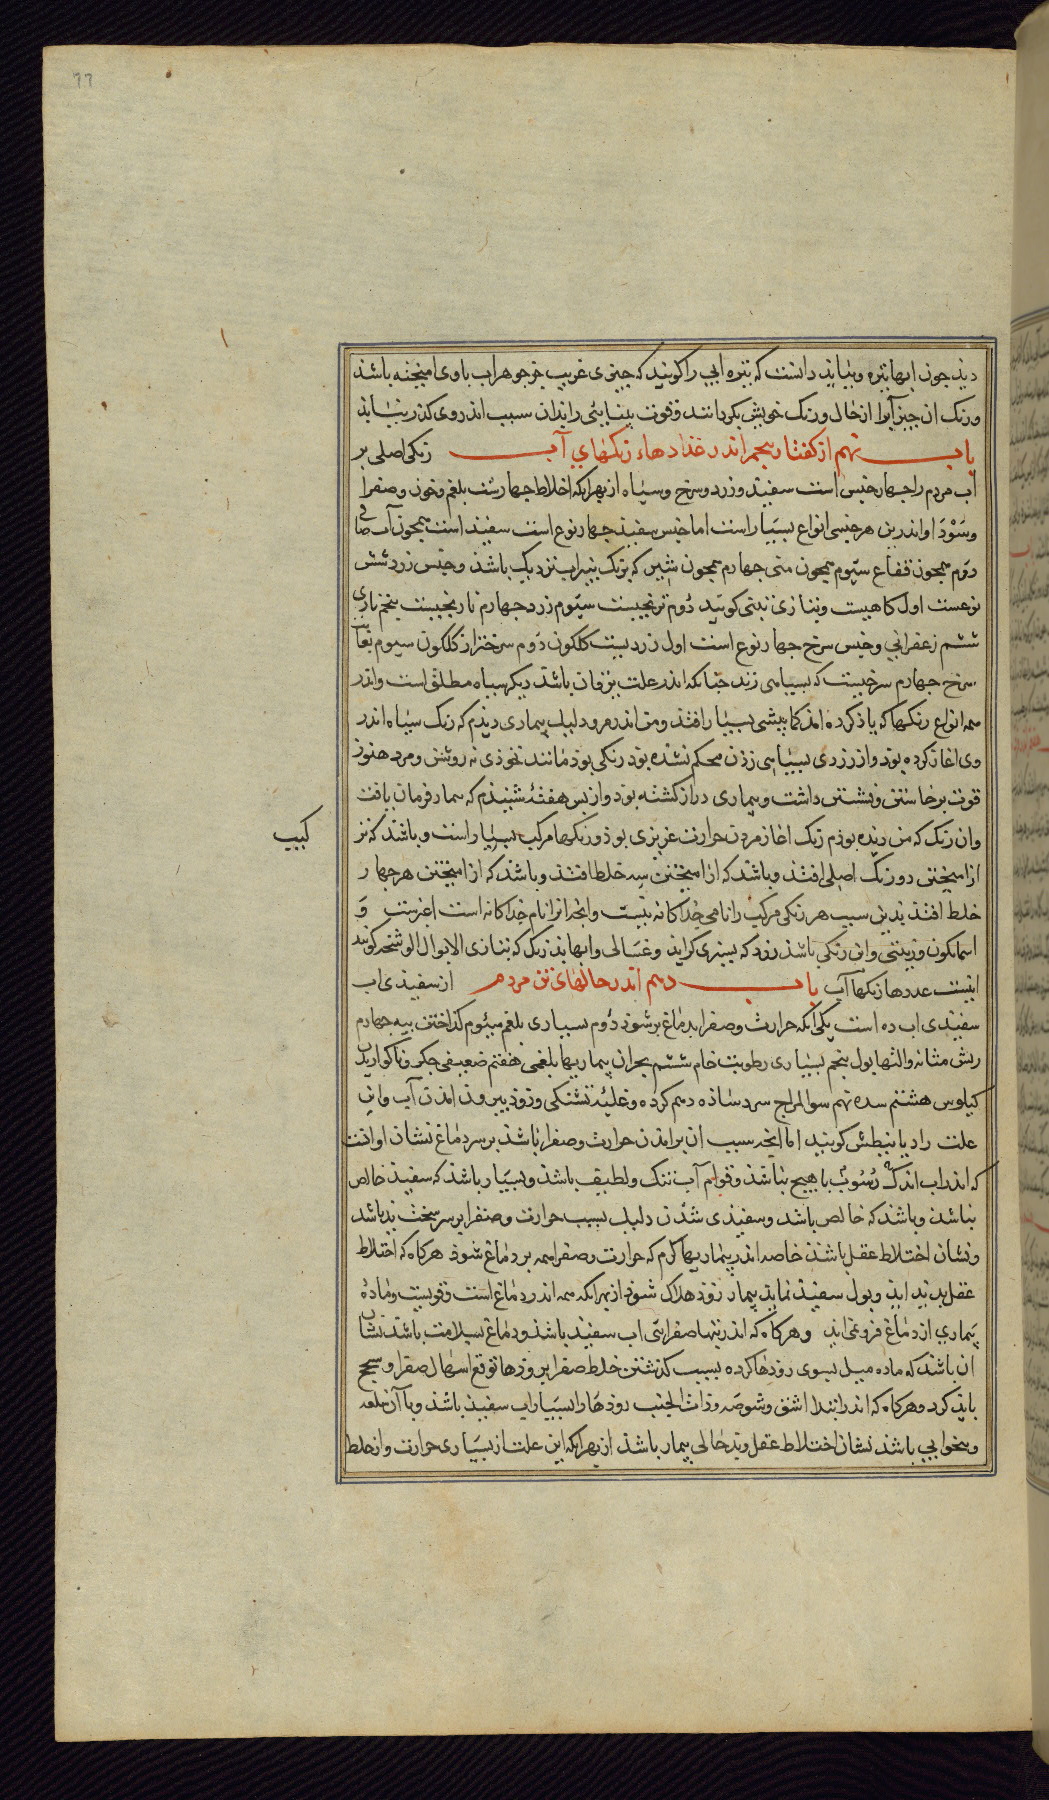 ٦٦
دیذ جون ابهاء تیره وبباید دانست که تیره ابی را کویند که جیزی غریب جز جوهر اب باوی امیخته باشد
ورنک ان جیز آبرا از حال ورنک خویش بکرداند وقوت بینایی را بدان سبب اندر وی کذر نیابد
باب نهم از کفتار پنجم اندر عددهاء رنکهای آب رنکی اصلی بر
اب مردم را جهار جنس است سفید وزرد وسرخ وسیاه از بهر انکه اخلاط جهارست بلغم وخون وصفرا
وسَوْدَا واندرین هر جنسی انواع بسیار است اما جنس سفید جهار نوع است سفید است همجون آب صافی
دوم همجون فقاع سیوم همجون منی جهارم همجون شیر که برنک پنیر اب نزدیک باشد وجنس زرد شش
نوعست اول کاهیست وبتازی تبنی کویند دوم ترنجیست سیوم زرد جهارم نارنجیست پنجم ناری
ششم زعفرانی وجنس سرخ جهار نوع است اول زردیست کلکون دوم سرختر از کلکون سیوم بغایت
سرخ جهارم سرخیست که بسیاهی زند جنانکه اندر علت یرقان باشد دیکر سیاه مطلق است واندر
همه انواع رنکها که یاذ کرده امد کمابیشی بسیار افتد ومن اندر مرو دلیل بیماری دیدم که رنک سیاه اندر
وی اغاز کرده بود واز زردی بسیاهی زدن محکم نشده بود رنکی بود مانند نخوذی نه روشن ومرد هنوز
قوت برخاستن ونشستن داشت وبیماری دراز کشته بود واز پس هفته شنیدم که بیمار فرمان یافت
وان رنک که من دیده بودم رنک اغاز مردن حرارت غریزی بود ورنکهاء مرکب بسیار است وباشد که نیز
کبیب
از امیختن دو رنک اصلی افتد وباشد که از امیختن سه خلط افتد وباشد که از امیختن هر جهار
خلط افتد بدین سبب هر رنکی مرکب را نامی جداکانه نیست وانجه انرا نام جداکانه است اغبرست و
اسمانکون وزیتی وان رنکی باشد زرد که بسبزی کراید وغسالی وانها بد رنک که بتازی الابوال الوسخه کویند
اینست عددهاء رنکهاء آب باب دهم اندر حالهای تن مردم از سفیذی اب
سفیدی اب ده است یکی انکه حرارت وصفرا بدماغ برشود دوم بسیاری بلغم سیوم کداختن پیه جهارم
ریش مثانه والتهاء بول پنجم بسیاری رطوبت خام ششم بحران بیماریهاء بلغمی هفتم ضعیفی جکر وناکواریدن
کیلوس هشتم سده نهم سوالمزاج سرد ساذه دهم کرده وغلبه تشنکی وزود بیرون امدن آب واین
علت را دیابیطس کویند اما انجه سبب ان برامدن حرارت وصفرا باشد بر سر دماغ نشان او انست
که اندر اب اندک رُسُوب باهیج نباشد وقوام آب تنک ولطیف باشد وبسیار باشد که سفید خالص
نباشد وباشد که خالص باشد وسفیدی شدن دلیل بسبب حرارت وصفرا بر سر سخت بد باشد
ونشان اختلاط عقل باشد خاصه اندر بیماریهاء کرم که حرارت وصفرا همه بر دماغ شود هرکاه که اختلاط
عقل بدید اید وبول سفید نماید بیمار زود هلاک شود از بهر انکه همه اندر دماغ است وقویست وماده
بیماری از دماغ فرو نمی اید وهرکاه که اندر تبهاء صفرایی اب سفید باشد ودماغ بسلامت باشد نشان
ان باشد که ماده میل بسوی روذها کرده بسبب کذشتن خلط صفرا بروذها توقع اسهال صفرا وسحج
باید کرد وهرکاه که اندر ابتداء شقیقه وشوصه وذات الجنب روذها را بسیار اب سفید باشد وبا آن قلعه
وبیخوابی باشد نشان اختلاط عقل وبد حالی بیمار باشد از بهر انکه این علت از بسیاری حرارت واز خلط